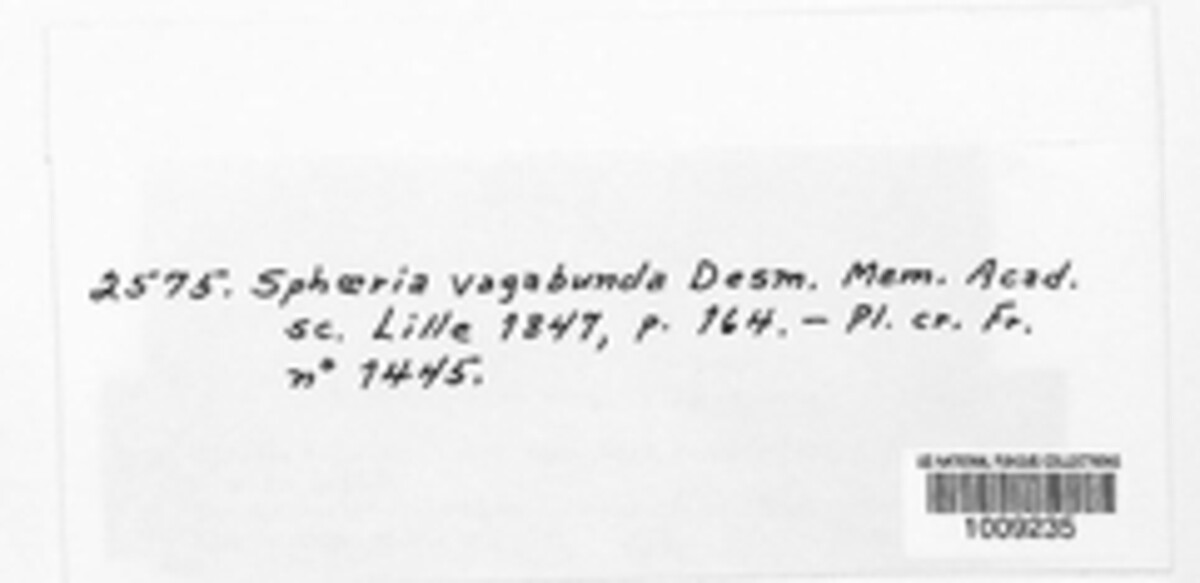 2575. Sphœria vagabunda Desm. Mem. Acad.
sc. Lille 1847, p. 164. — Pl. cr. Fr.
n° 1445.
US NATIONAL FUNGUS COLLECTIONS
1009235